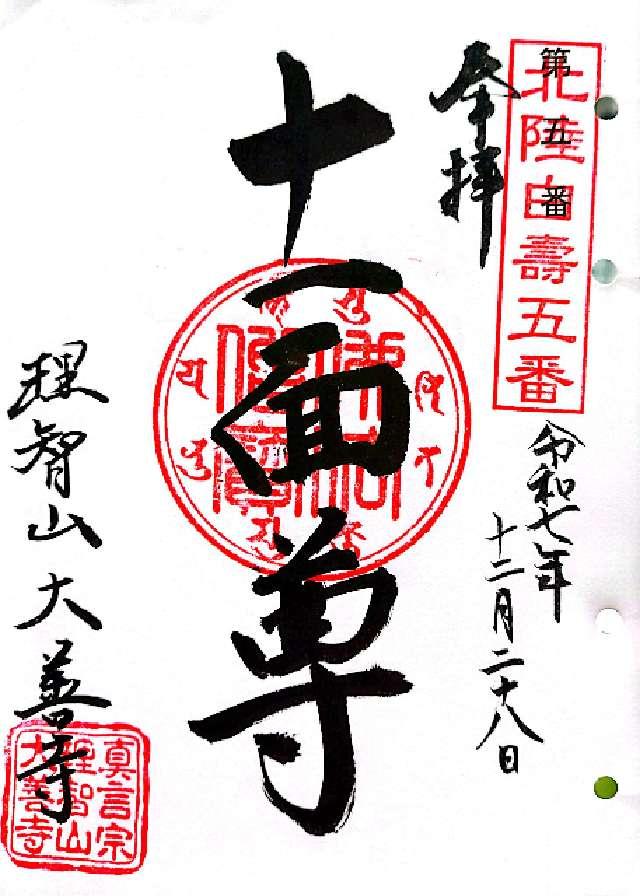 第五番
北陸白壽五番
奉拝
令和七年
十二月二十八日
十一面尊
佛法僧寶
理智山大善寺
真言宗
理智山
大善寺